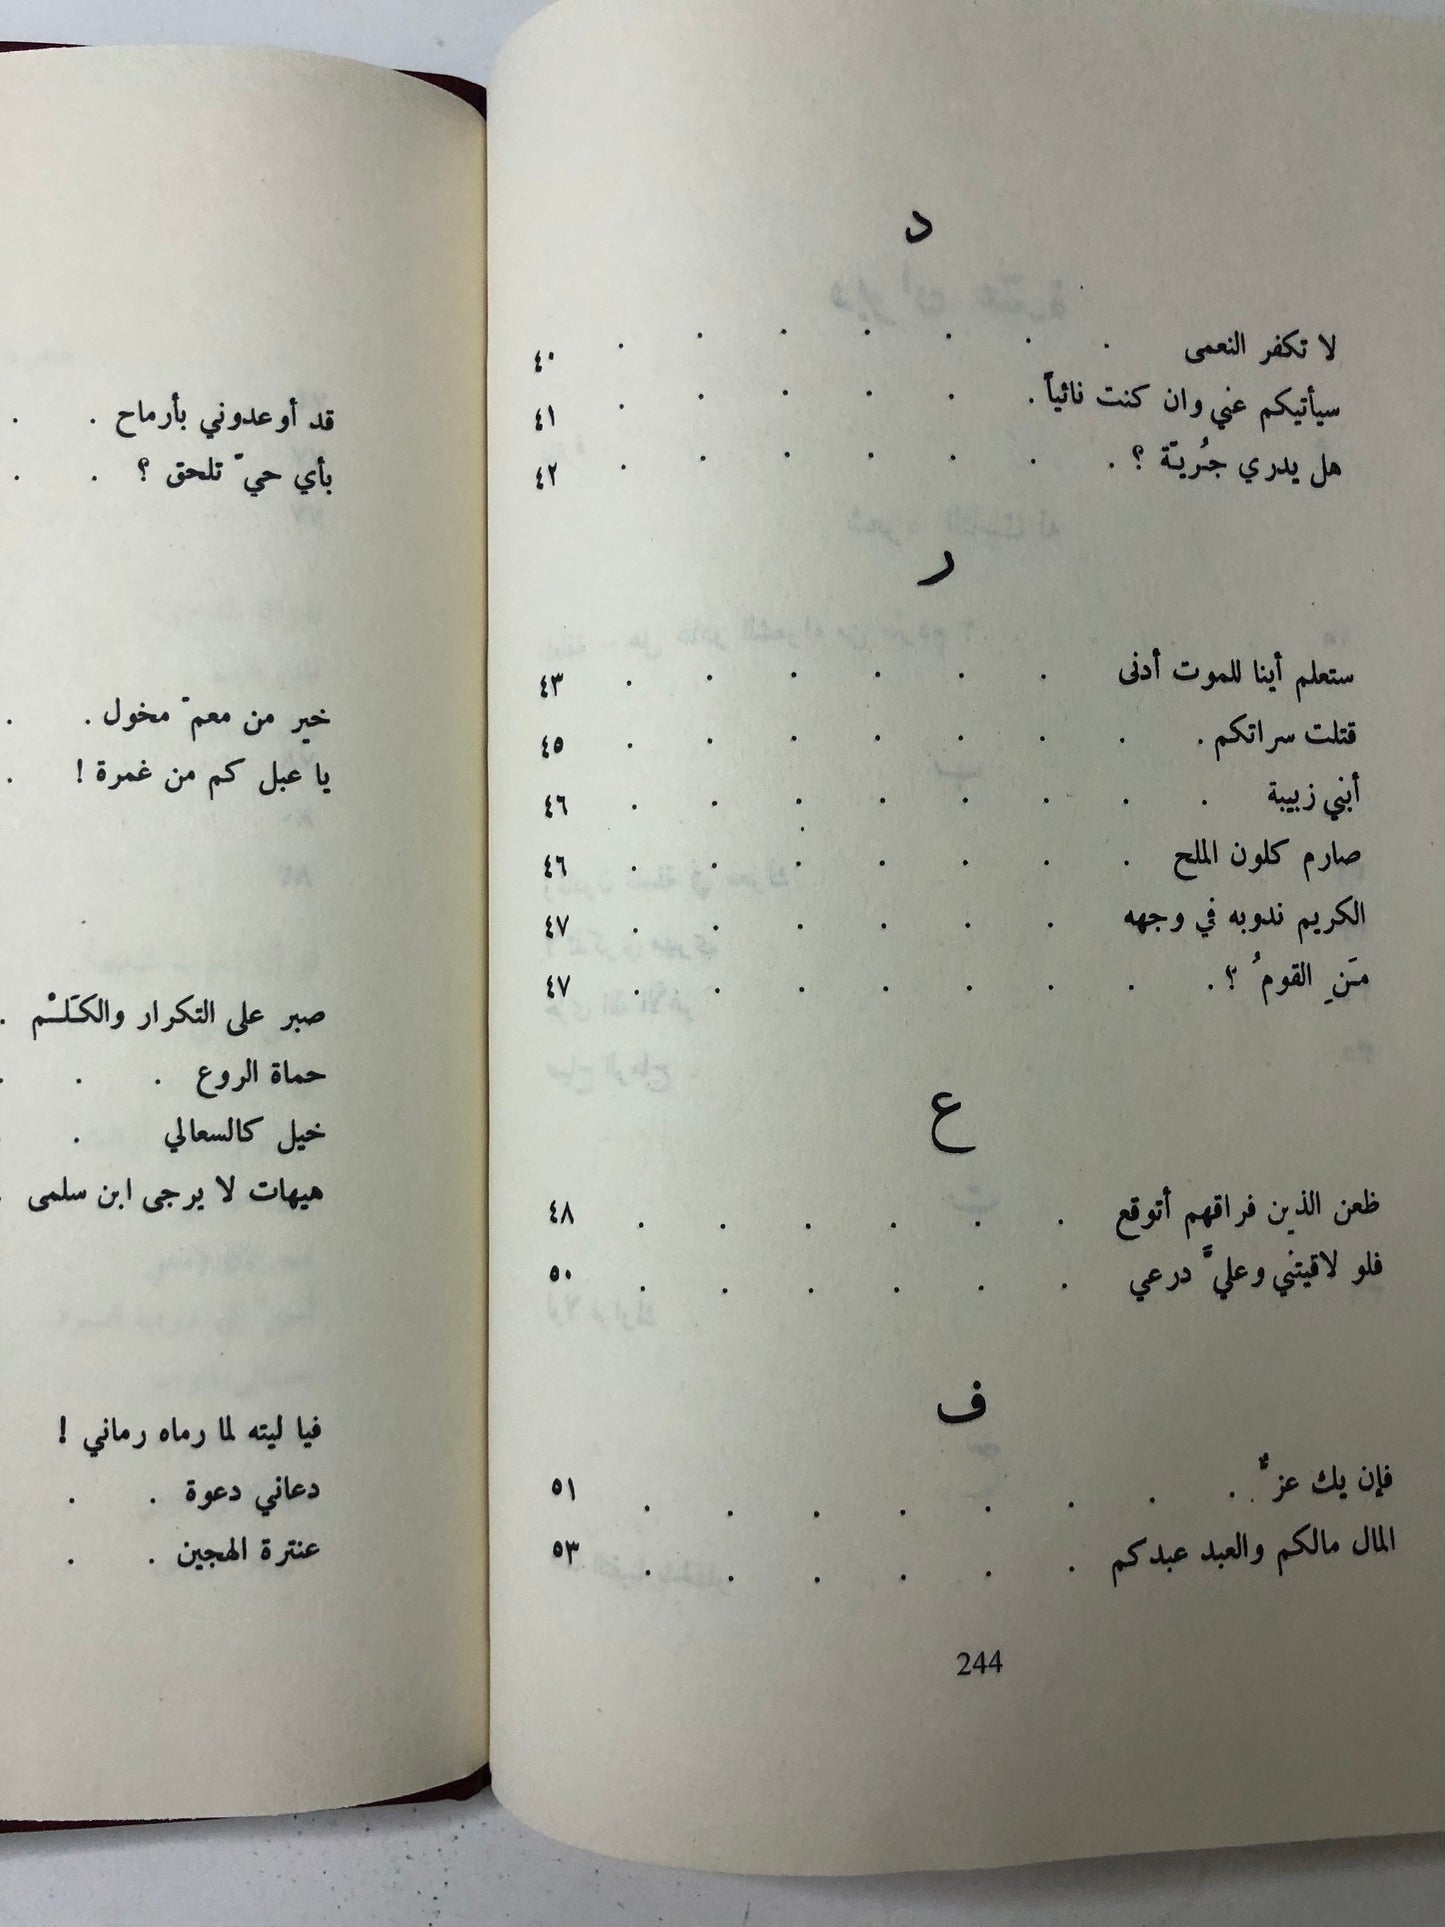 د
لا تكفر النعمى . . . . . . . ٤٠
سيأتيكم عني وان كنت نائياً . . . . . . ٤١
هل يدري جُريّة ؟ . . . . . . . ٤٢
ر
ستعلم أينا للموت أدنى . . . . . . ٤٣
قتلت سراتكم . . . . . . . . ٤٥
أبني زبيبة . . . . . . . . ٤٦
صارم كلون الملح . . . . . . . ٤٦
الكريم ندوبه في وجهه . . . . . . ٤٧
مَنِ القومُ ؟ . . . . . . . . ٤٧
ع
ظعن الذين فراقهم أتوقع . . . . . . ٤٨
فلو لاقيتني وعليَّ درعي . . . . . . ٥٠
ف
فإن يك عزٌّ . . . . . . . . ٥١
المال مالكم والعبد عبدكم . . . . . . ٥٣
244
قد أوعدوني بأرماح . .
بأي حيّ تلحق ؟ . .
خير من معمّ مخول . .
يا عبل كم من غمرة ! .
صبر على التكرار والكَلْم .
حماة الروع . . .
خيل كالسعالي . .
هيهات لا يرجى ابن سلمى .
فيا ليته لما رماه رماني !
دعاني دعوة . .
عنترة الهجين . .